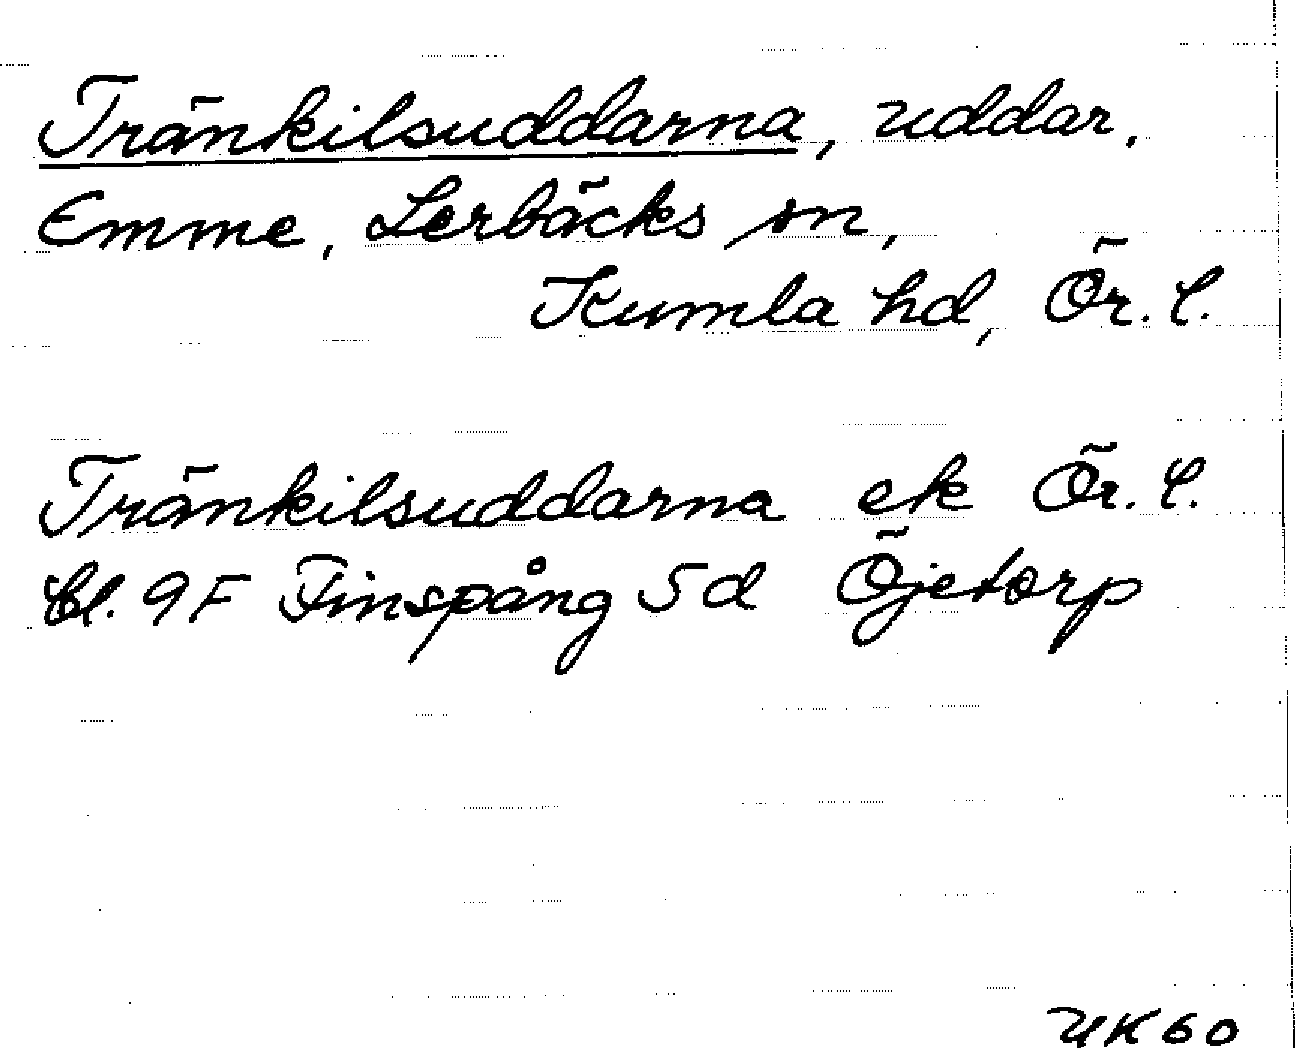 Tränkilsuddarna, uddar,
Emme, Lerbäcks sn,
Kumla hd, Ör. l.
Tränkilsuddarna ek Ör. l.
bl. 9F Finspång 5d Öjetorp
UK60